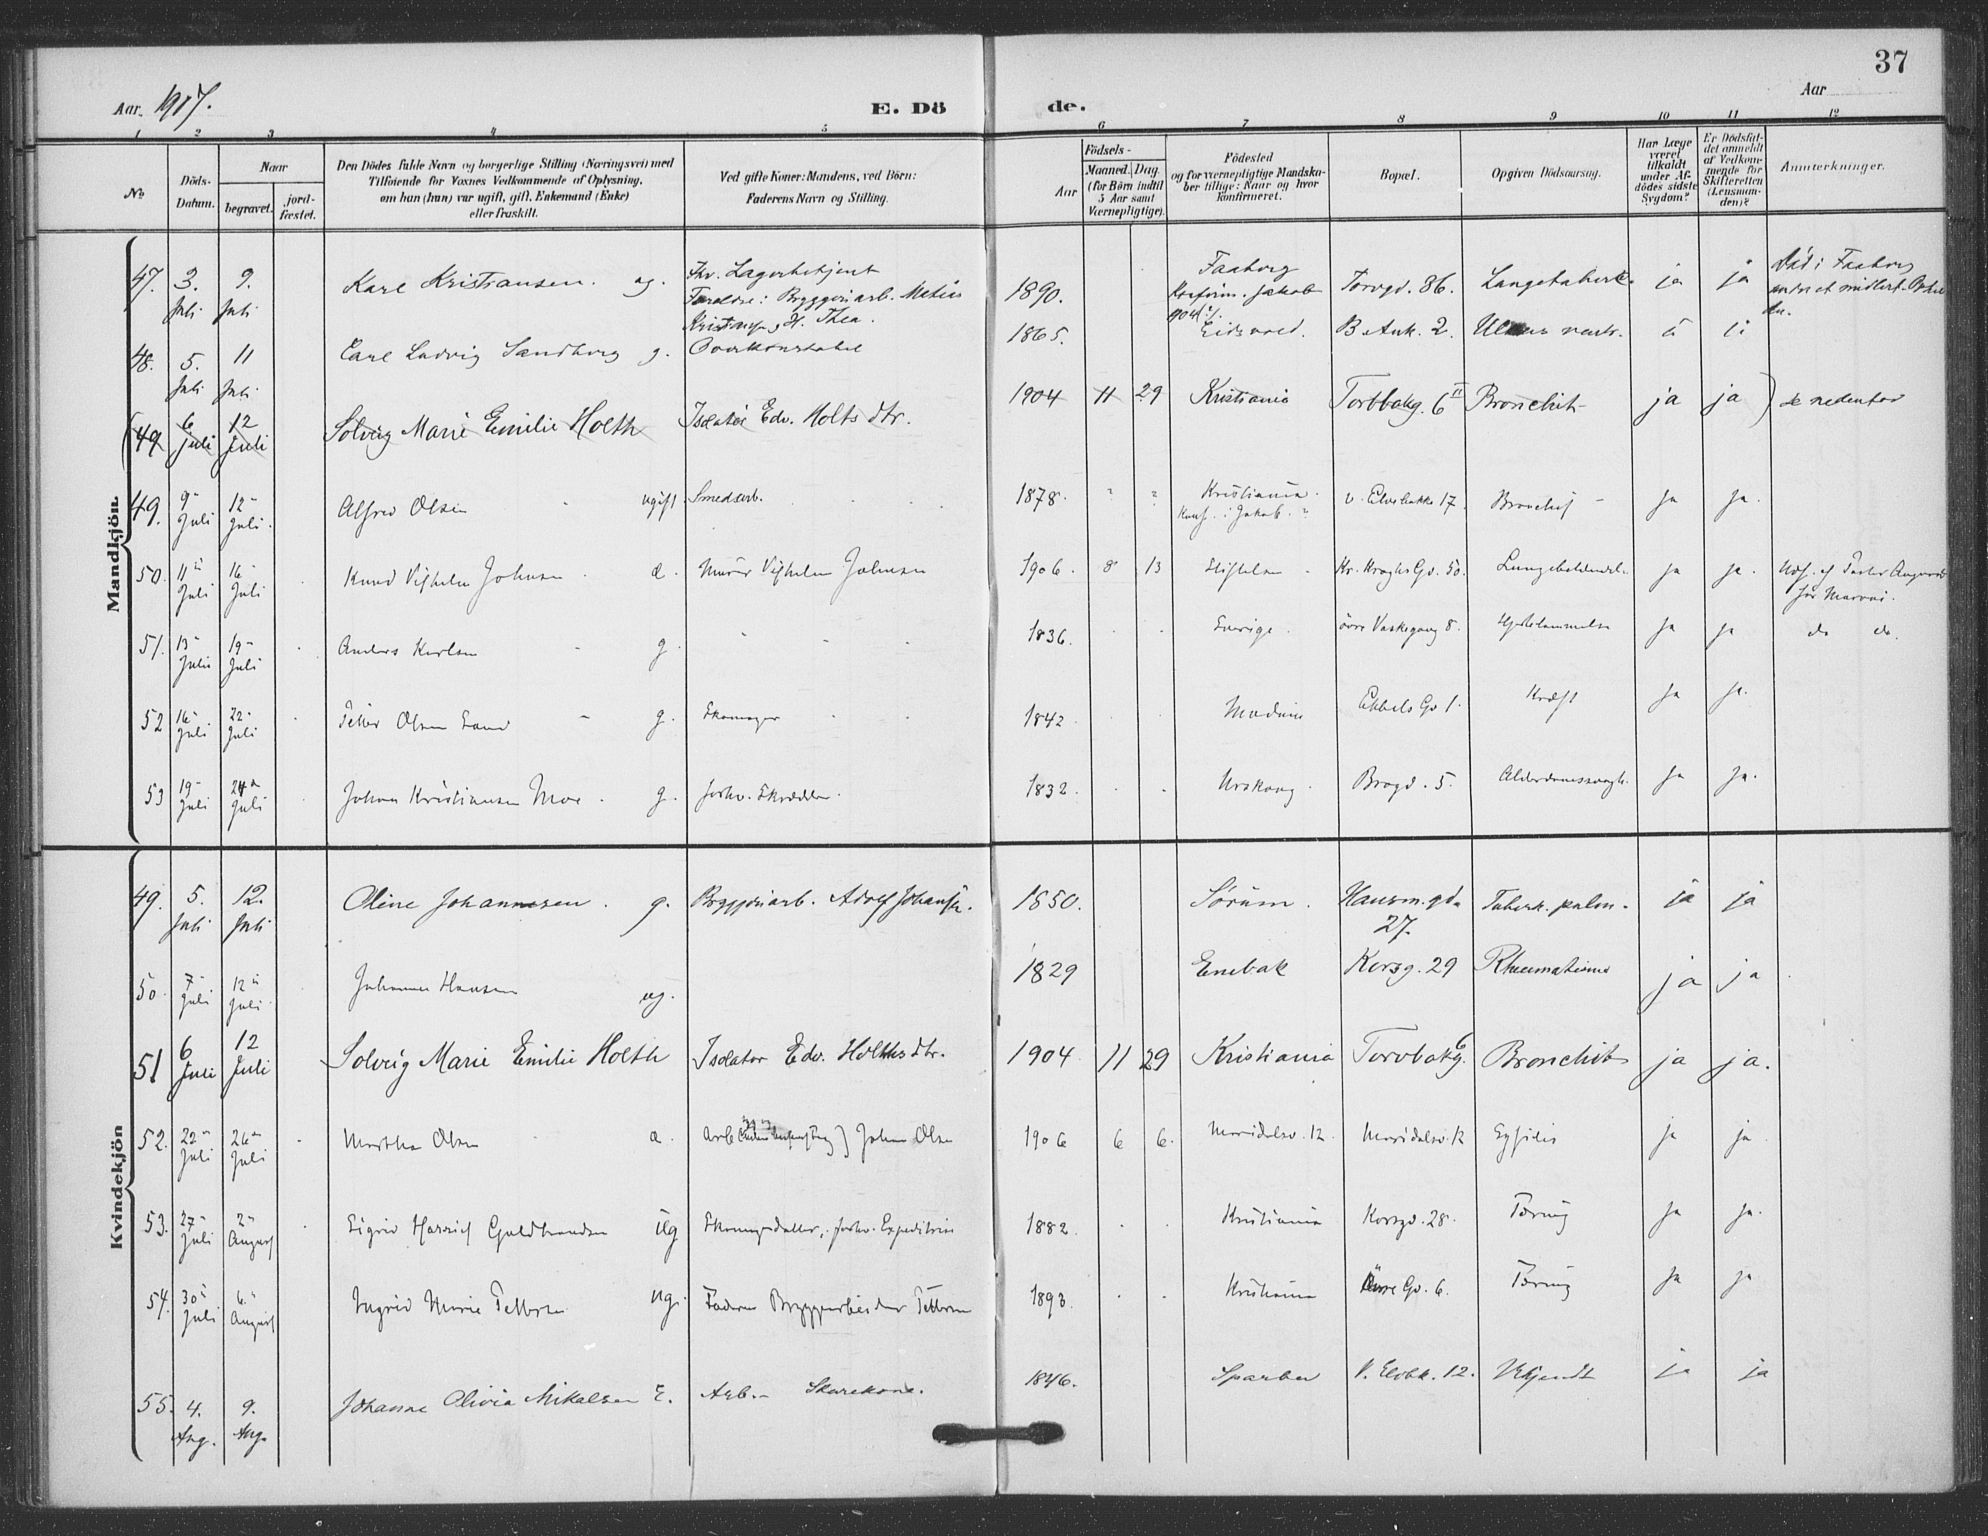 37
Aar 1907.
E. Dö
de.
Aar
1 2 3 4 5 6 7 8 9 10 11 12
No
Döds-Datum.
Naar
begravet.
jord-fæstet.
Den Dödes fulde Navn og borgerlige Stilling (Næringsvei) med
Tilföiende for Voxnes Vedkommende af Oplysning,
om han (hun) var ugift, gift, Enkemand (Enke)
eller fraskilt.
Ved gifte Koner: Mandens, ved Börn:
Faderens Navn og Stilling.
Aar
Födsels-
Maaned. Dag.
(for Börn indtil
5 Aar samt
Værnepligtige).
Födested
og for værnepligtige Mandska-
ber tillige: Naar og hvor
konfirmeret.
Bopæl.
Opgiven Dödsaarsag.
Har Læge
været
tilkaldt
under Af-
dödes sidste
Sygdom?
Er Dödsfal-
det anmeldt
af Vedkom-
mende for
Skifteretten
(Lensman-
den)?
Anmærkninger.
Mandkjön
47. 3. Juli 9. Juli Karl Kristiansen. ug. Fhv. Lagerbetjent
1890. Faaborg
Konfirm. Jakob
Torvgd. 86. ja ja Död i Faaborg
48. 5. Juli 11 Juli Carl Ludvig Sandberg g. Overkonstabel 1865. Eidsvold. B. Ank. 2.
(49 6 Juli 12 Juli Solveig Marie Emilie Holth Isolatör Edv. Holts dtr. 1904 11 29 Kristiania Torvbakg. 6 II Bronchit ja ja ) se nedenfor
49. 9 Juli 12 Juli. Alfred Olsen ugift Smedarb. 1878. Kristiania.
Konf. i Jakob.
v. Elvebakke 17. Bronchit ja ja.
50. 11 Juli 16 Juli Knud Vilhelm Johnsen Murer Vilhelm Johnsen 1906. 8 13 Stiftelsen Kr. Kroghs Gd. 50. ja ja.
51. 13 Juli 19 Juli Anders Karlsen g. 1836. Sverige. övre Vaskegang 8. Hjertelammelse ja ja do do.
52 16 Juli 22 Juli Petter Olsen Sand g. Skomager 1842 Modum Gd 1. Kræft ja ja.
53 19 Juli 24 Juli Johan Kristiansen Moe. g. forhv. Skrædder. 1832. Urskoug Brogd. 5. ja ja.
Kvindekjön
49. 5. Juli 12. Juli Oline Johannesen. g. Bryggeriarb. Adolf Johansen. 1850. Sörum. Hausm. gd. 27. Tuberk. pulm. ja ja
50. 7 Juli 12 Juli. Johanne Hansen ug. 1829 Enebak Korsg. 29 Rheumatisme ja ja
51 6 Juli 12 Juli Solveig Marie Emilie Holth Isolatör Edv. Holths dtr. 1904 11 29 Kristiania Torvbakg. 6 Bronchit ja ja.
52. 22 Juli 26 Juli Martha Olsen Johan Olsen 1906 6 6. Maridalsv. 12. Maridalsv. 12 Syfilis ja ja
53. 27 Juli 2 August Sigrid Guldbrandsen ug 1882 Kristiania Korsgd. 28. Tæring ja ja.
54. 30 Juli 6 August Ingrid Marie Pettersen ug. Faderen Bryggeriarbeider Pettersen 1893. Kristiania Gd. 6. Tæring ja ja
55. 4. Aug. 9. Aug. Johanne Olivia Mikalsen E. Arb. 1846. Sparbu V. Elvbk. 12. Ukjendt ja ja